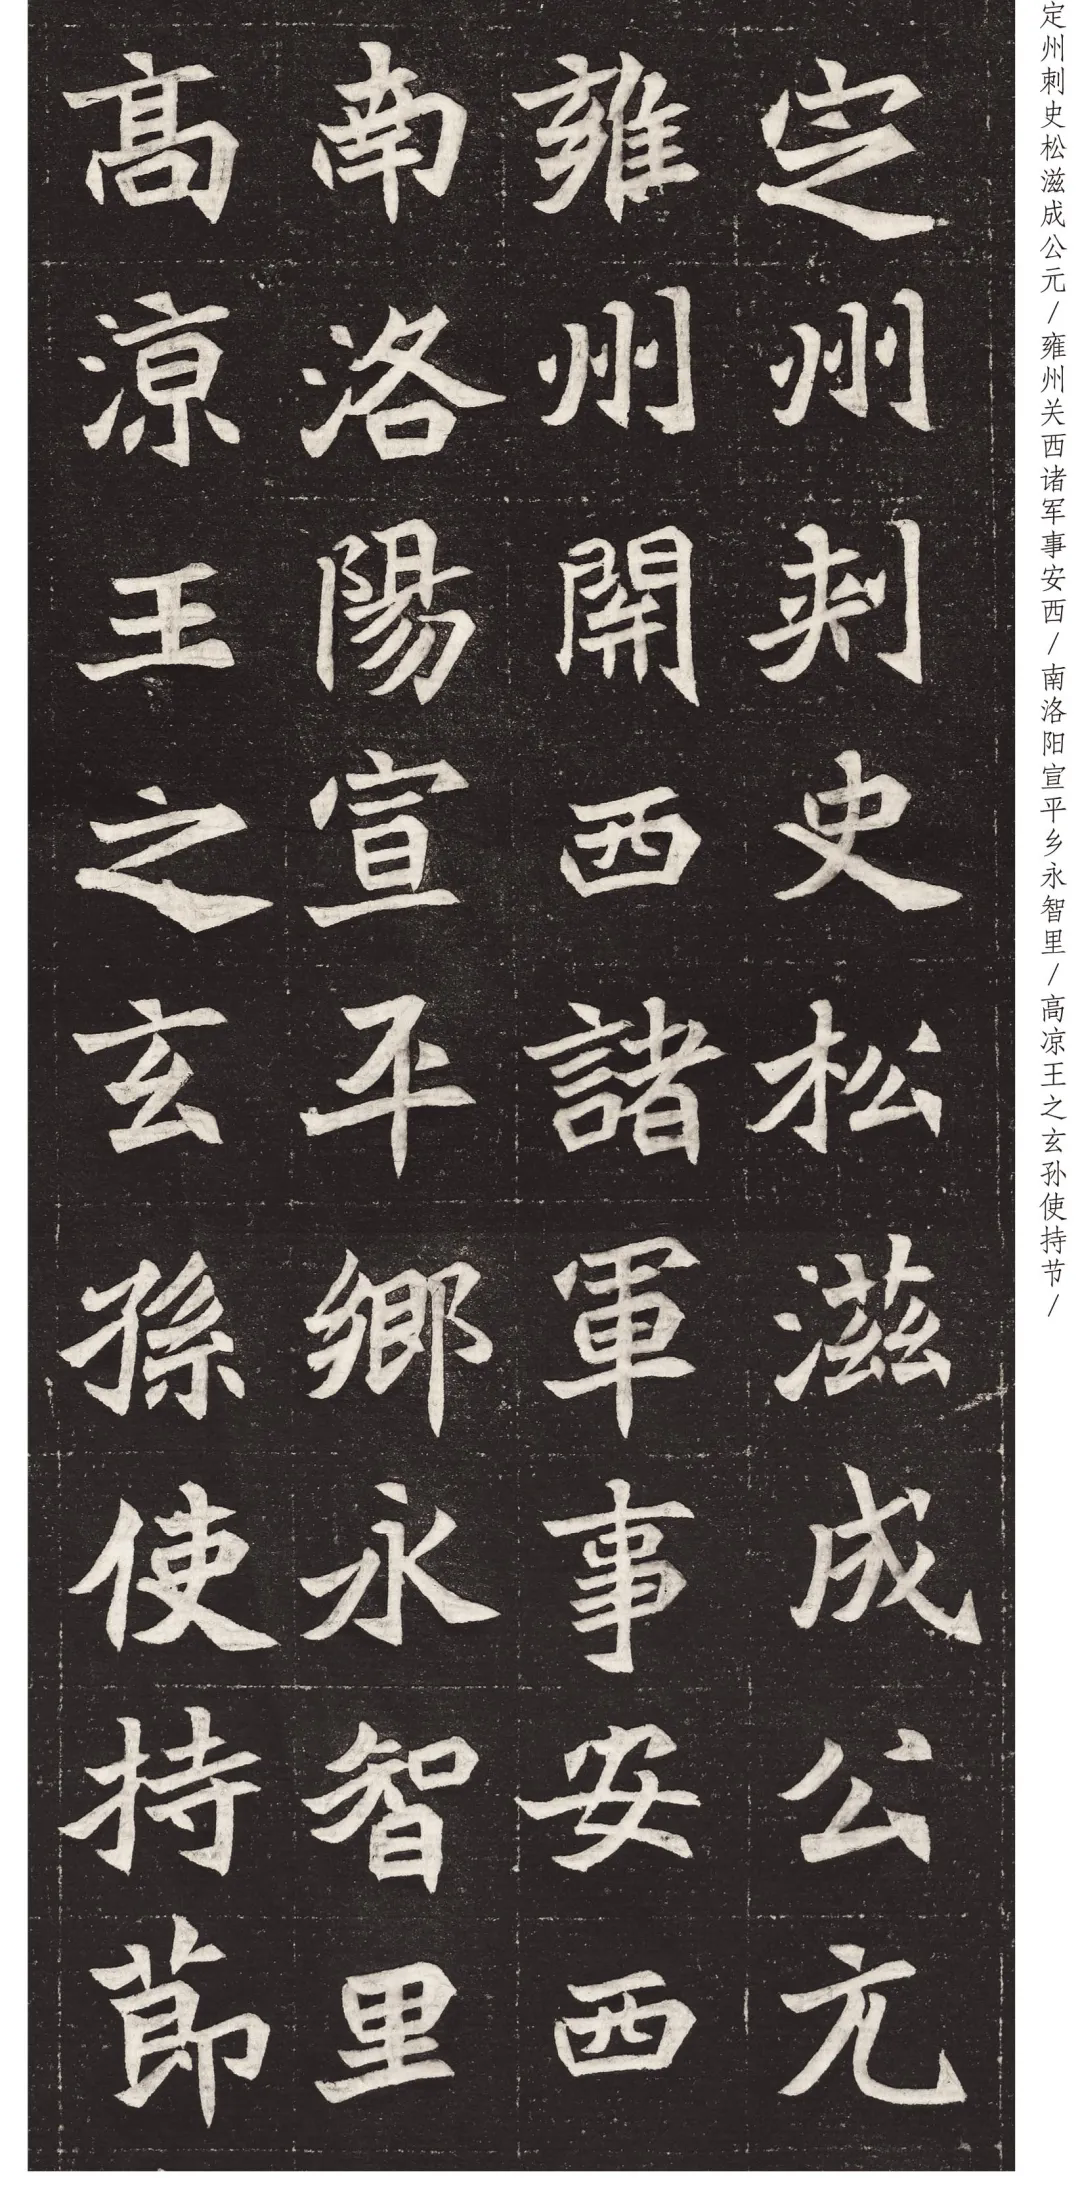 定州刺史松滋成公元/雍州关西诸军事安西/南洛阳宣平乡永智里/高凉王之玄孙使持节/
定州刾史松滋成公亢
雍州開西諸軍事安西
南洛陽宣平鄉永智里
髙涼王之玄孫使持莭